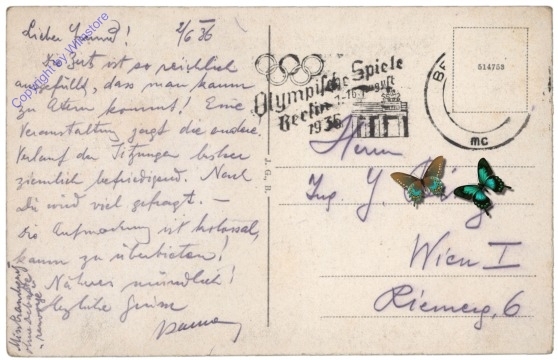 Lieber Freund! 2/6 36
Die Zeit ist so reichlich
ausgefüllt, dass man kaum
zu Atem kommt! Eine
Veranstaltung jagt die andere.
Verlauf der Sitzungen bisher
ziemlich befriedigend. Nach
Dir wird viel gefragt. —
Die Aufmachung ist kolossal,
kaum zu überbieten!
Näheres mündlich!
Herzliche Grüsse
Copyright by Wienstore
J. G. B.
Olympische Spiele
1.-16. August
Berlin
1936
BE
mc
514758
Herrn
Ing. J.
Wien I
Riemerg. 6